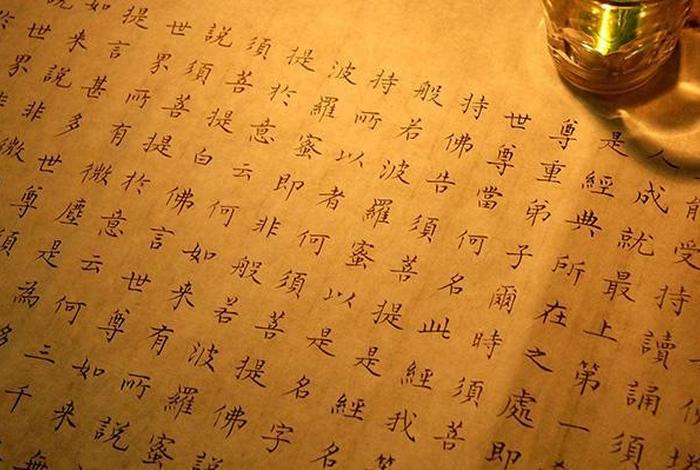 能受持讀誦須
人成就最上第一
是經典所在之處即
尊重弟子爾時須菩
世尊當何名此經我
持佛告須菩提是經名
般若波羅蜜以是名字
持所以者何須菩提佛說
波羅蜜即非般若波羅蜜
提於意云何如來有所說
須菩提白佛言世尊如來無
說須菩提於意云何三千
世界所有微塵是為多
提言甚多世尊須
如來說非微
世界非
於